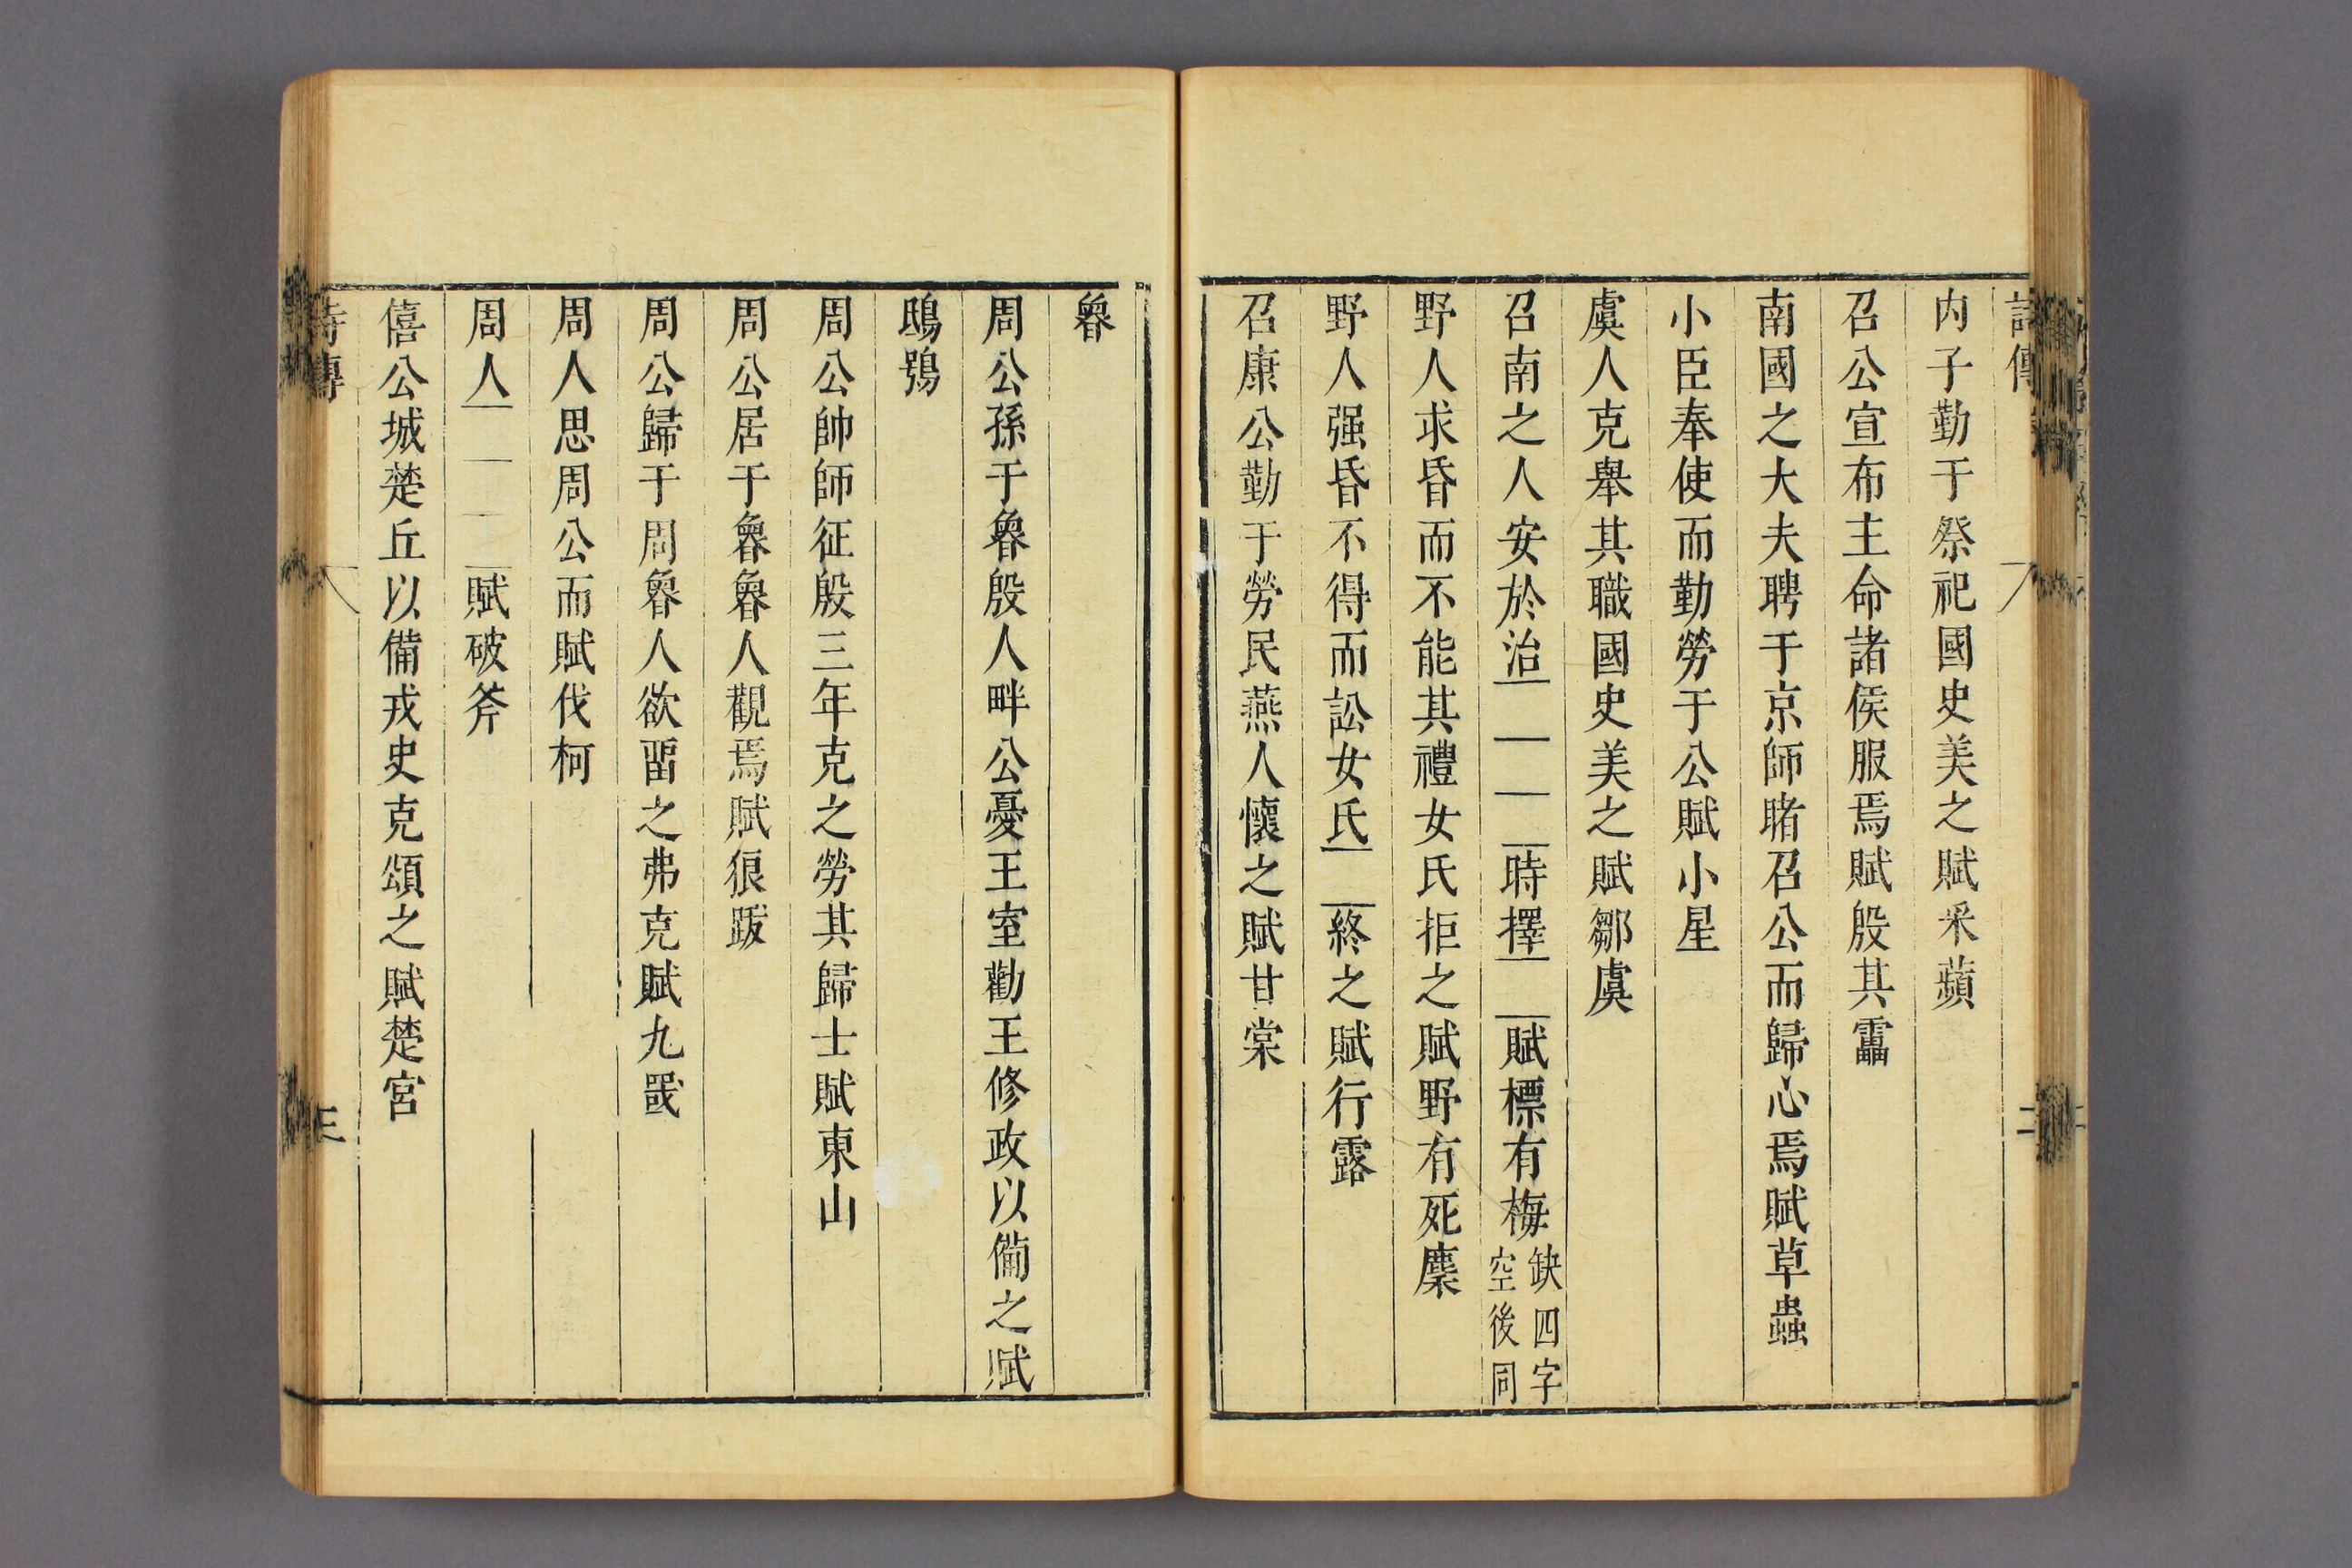 詩傳
二
内子勤于祭祀國史美之賦采蘋
召公宣布主命諸侯服焉賦殷其靁
南國之大夫聘于京師睹召公而歸心焉賦草蟲
小臣奉使而勤勞于公賦小星
虞人克舉其職國史美之賦鄒虞
召南之人安於治 時擇 賦標有梅缺四字空後同
野人求昏而不能其禮女氏拒之賦野有死麇
野人强昏不得而訟女氏 終之賦行露
召康公勤于勞民燕人懷之賦甘棠
魯
周公孫于魯殷人畔公憂王室勸王修政以備之賦
鴟鴞
周公帥師征殷三年克之勞其歸士賦東山
周公居于魯魯人觀焉賦狼跋
周公歸于周魯人欲畱之弗克賦九罭
周人思周公而賦伐柯
周人 賦破斧
僖公城楚丘以備戎史克頌之賦楚宮
詩傳
三